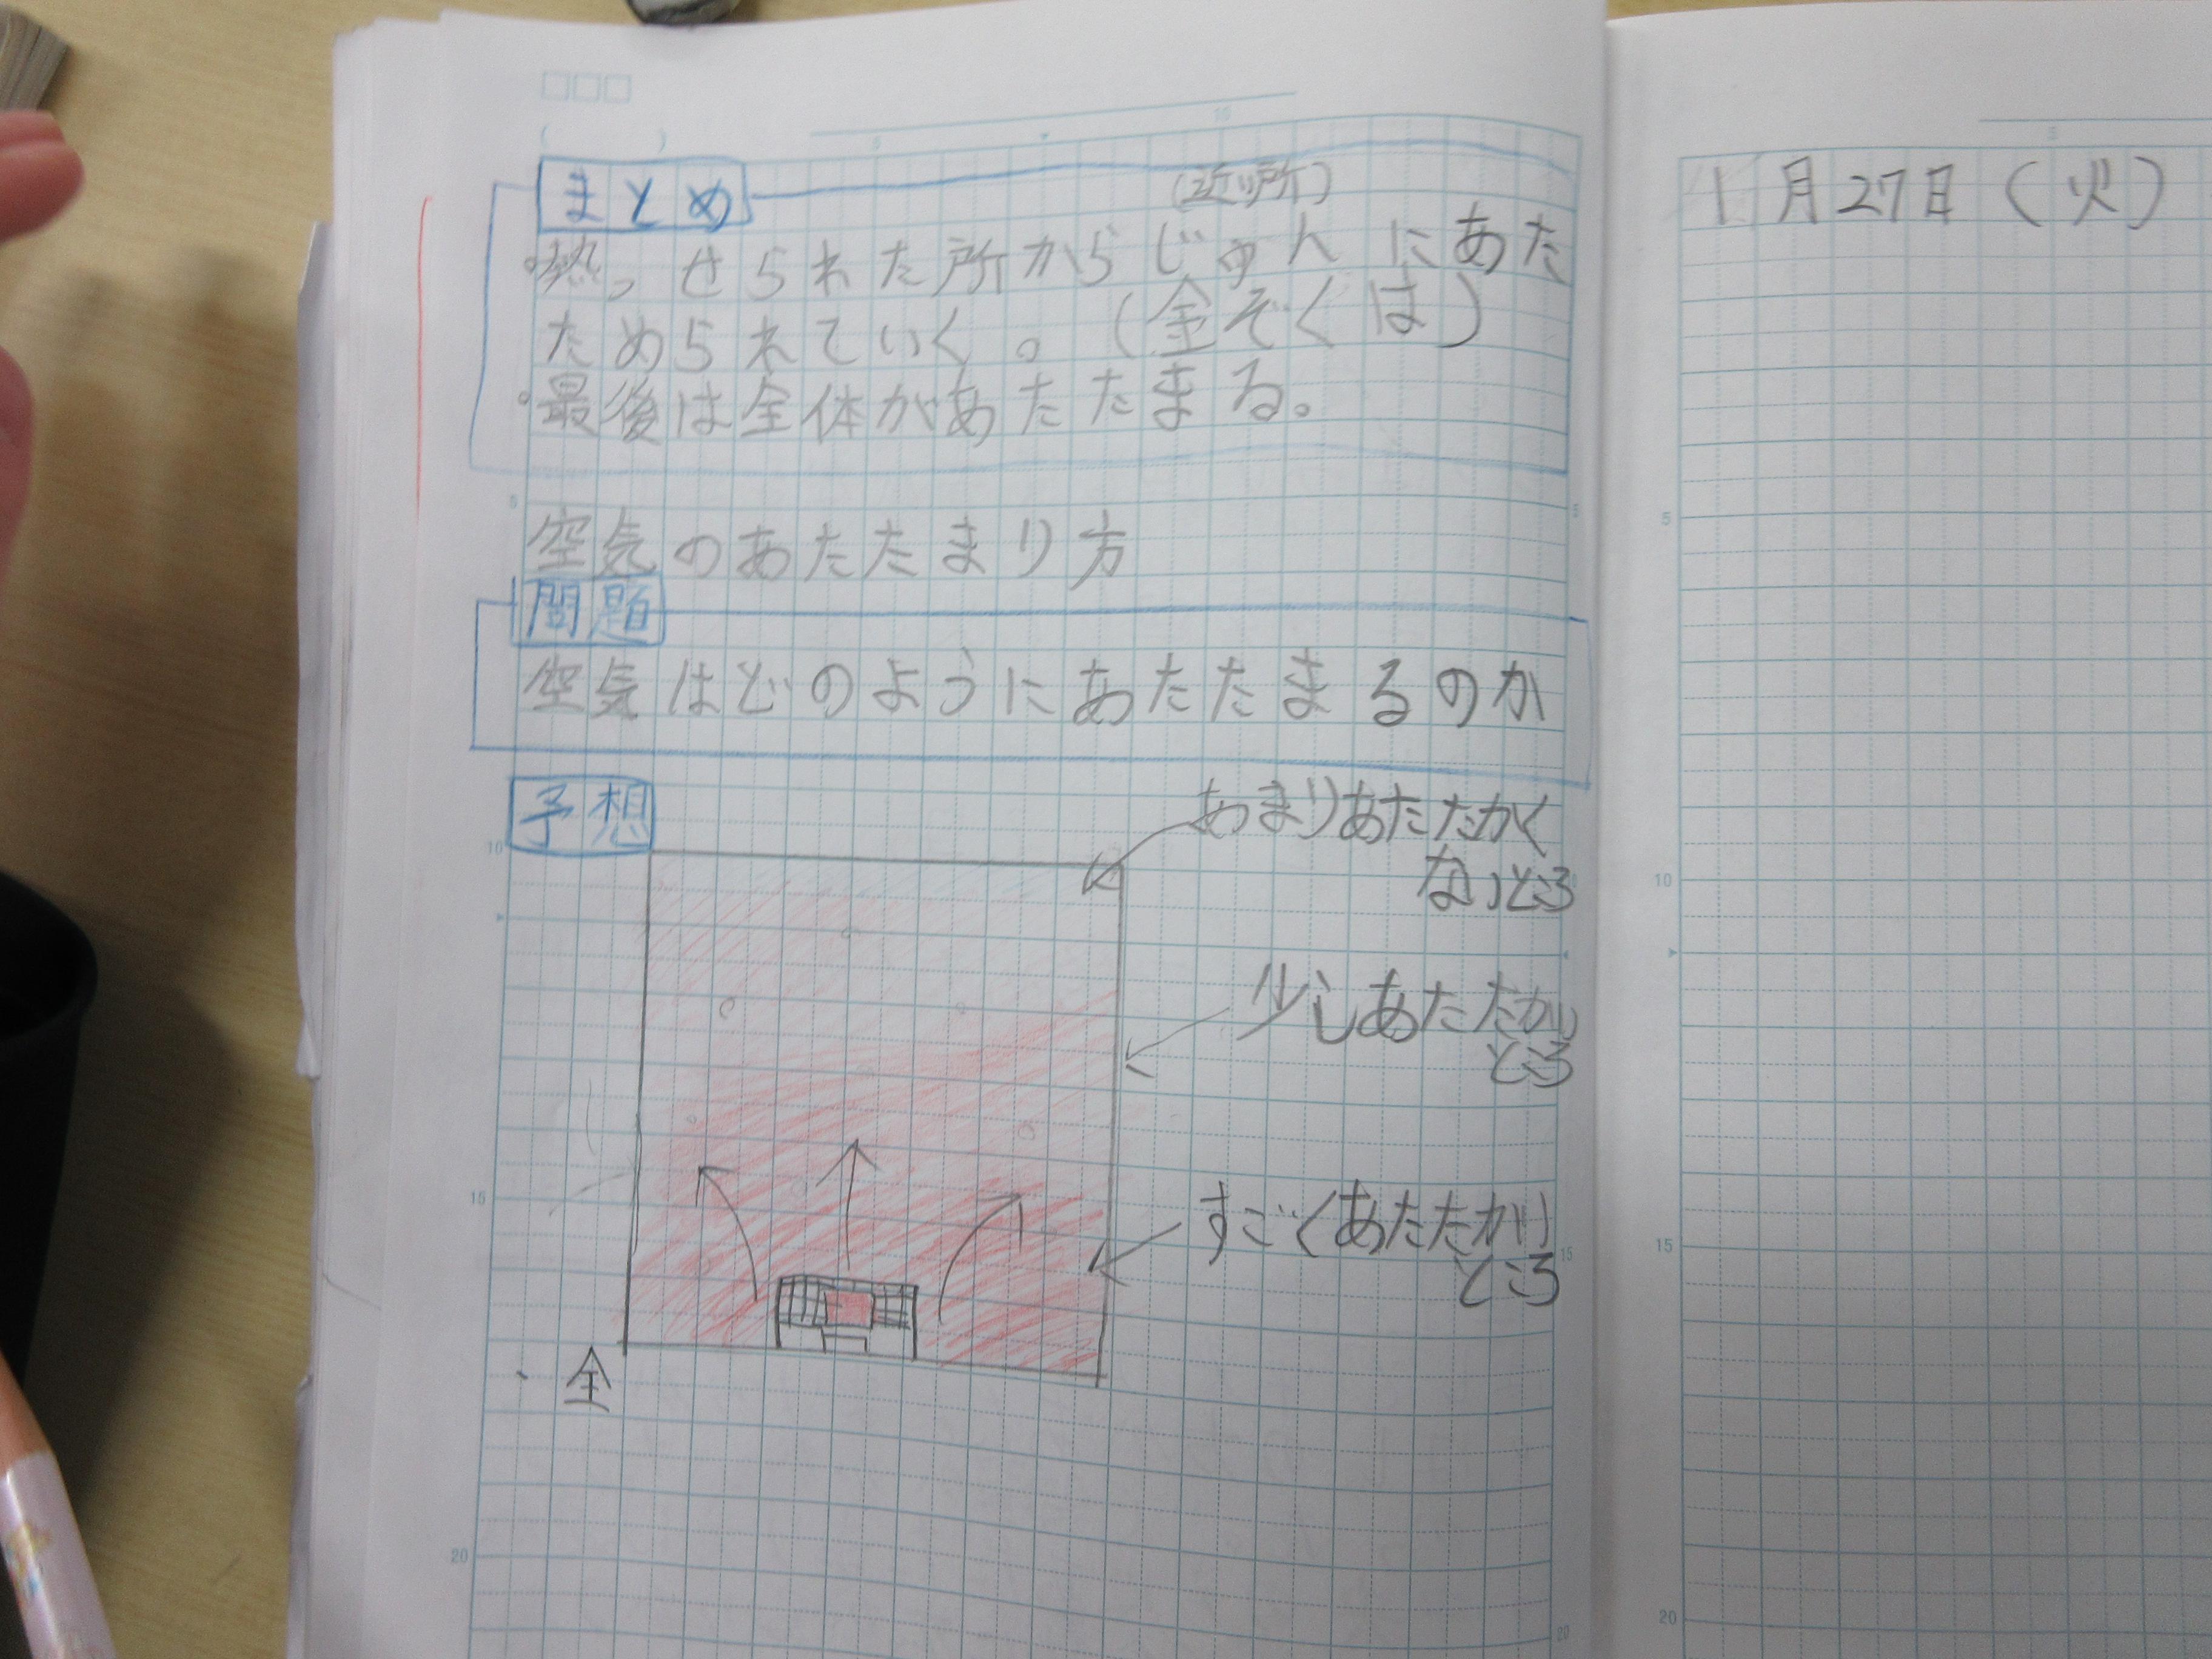 まとめ
(近い所)
熱っせられた所からじゅんにあた
ためられていく。(金ぞくは)
最後は全体があたたまる。
空気のあたたまり方
問題
空気はどのようにあたたまるのか
予想
あまりあたたかく
ないところ
少しあたたかい
ところ
すごくあたたかい
ところ
・全
1月27日(火)